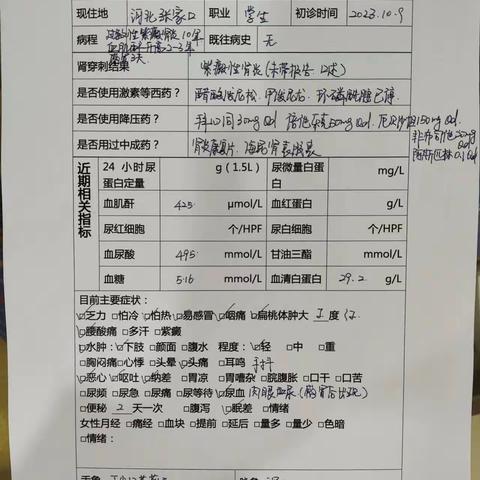 现住地 河北张家口 职业 学生 初诊时间 2023.10.9
病程 过敏性紫癜肾炎10年 血肌酐升高2-3年 既往病史 无
肾穿刺结果 紫癜性肾炎(未带报告 口述)
是否使用激素等西药? 醋酸泼尼松. 甲泼尼龙. 环磷酰胺已停.
是否使用降压药? 拜心同30mg Qd 厄贝沙坦150mg Qd.
非布司他 20mg Qd
阿斯匹林0.1 Qd
是否用过中成药? 肾炎康复片.
近期相关指标
24 小时尿蛋白定量 g(1.5L) 尿微量白蛋白 mg/L
血肌酐 425 μmol/L 血红蛋白 g/L
尿红细胞 个/HPF 尿白细胞 个/HPF
血尿酸 495 mmol/L 甘油三酯 mmol/L
血糖 5.16 mmol/L 血清白蛋白 29.2 g/L
目前主要症状:
□乏力 □怕冷 □怕热 □易感冒 □咽痛 □扁桃体肿大 I 度
□腰酸痛 □多汗 □紫癜
□水肿: □下肢 □颜面 □腹水 程度: □轻 □中 □重
□胸闷痛 □心悸 □头晕 □头痛 □耳鸣 手抖
□恶心 □呕吐 □纳差 □胃凉 □胃嘈杂 □脘腹胀 □口干 □口苦
□尿频 □尿急 □尿痛 □尿等待 □尿血 肉眼血尿(感冒后出现)
□便秘 2 天一次 □腹泻 □眠差 □情绪
女性月经 □痛经 □血块 □提前 □延后 □量多 □量少 □色暗
□情绪: